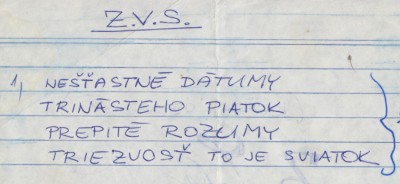 Z.V.S.
1, NEŠŤASTNÉ DÁTUMY
TRINÁSTEHO PIATOK
PREPITÉ ROZUMY
TRIEZVOSŤ TO JE SVIATOK